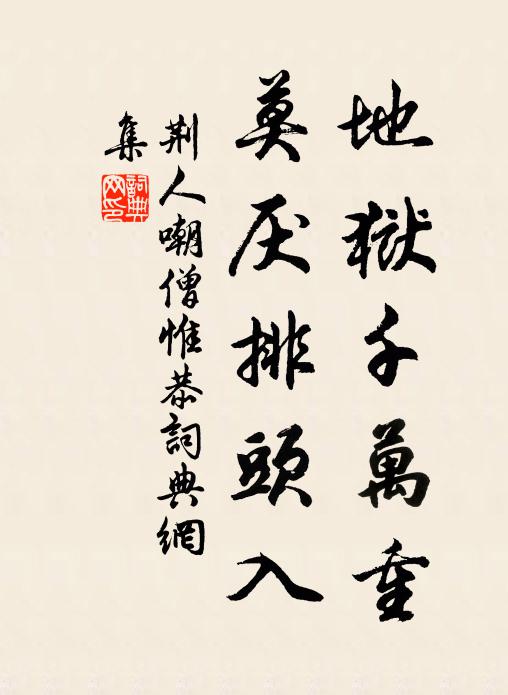 地獄千萬重
莫厌排頭入
荆人嘲僧惟恭詞典網
集
詞典
网印